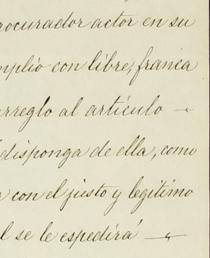 rocurador actor en su
mplio con libre, franca
rreglo al artículo —
disponga de ella, como
con el justo y legitimo
l se le espedirá —